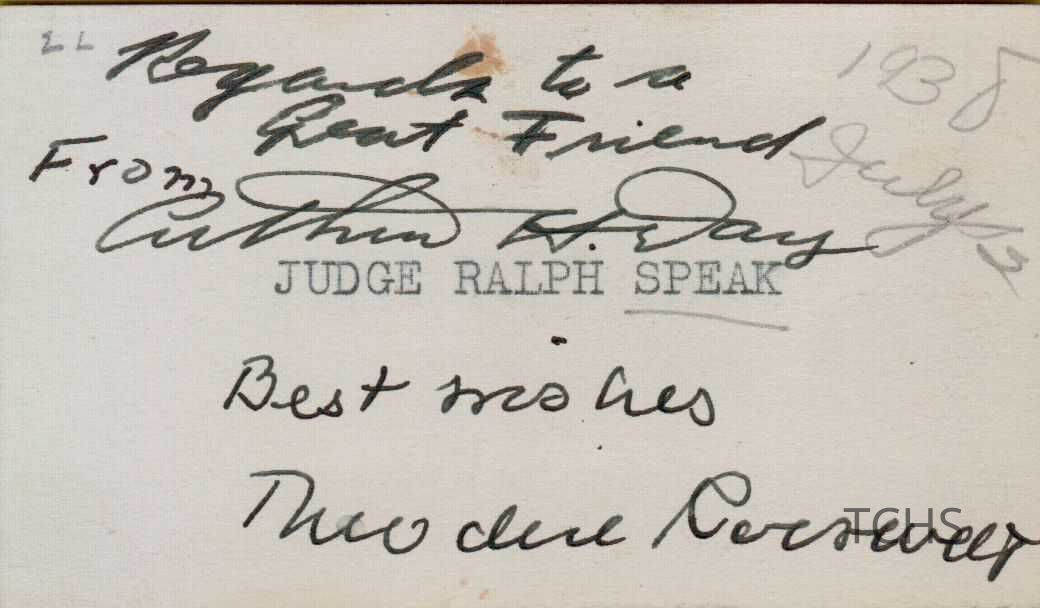 Regards to a
1938
Great Friend
July 2
From
Arthur H. Day
JUDGE RALPH SPEAK
Best wishes
Theodore Roosevelt
TCHS